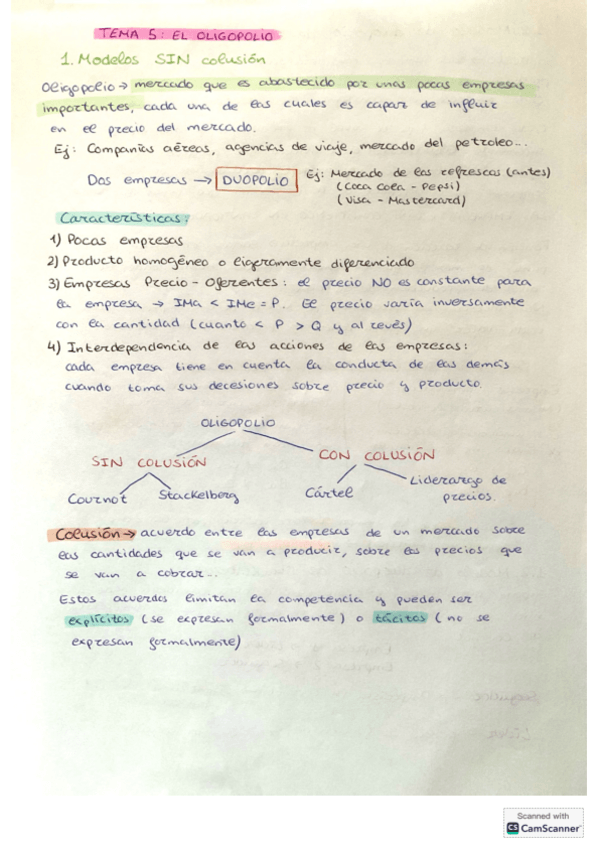 TEMA 5: EL OLIGOPOLIO
1. Modelos SIN colusión
Oligopolio → mercado que es abastecido por unas pocas empresas
importantes, cada una de las cuales es capaz de influir
en el precio del mercado.
Ej: Compañías aéreas, agencias de viaje, mercado del petroleo...
Dos empresas → DUOPOLIO Ej: Mercado de los refrescos (antes)
(Coca Cola - Pepsi)
(Visa - Mastercard)
Características:
1) Pocas empresas
2) Producto homogéneo o ligeramente diferenciado
3) Empresas Precio - Oferentes: el precio NO es constante para
la empresa → IMa < IMe = P. El precio varía inversamente
con la cantidad (cuanto < P > Q y al revés)
4) Interdependencia de las acciones de las empresas:
cada empresa tiene en cuenta la conducta de las demás
cuando toma sus decesiones sobre precio y producto.
OLIGOPOLIO
SIN COLUSIÓN CON COLUSIÓN
Cournot Stackelberg Cártel Liderazgo de
precios.
Colusión → acuerdo entre las empresas de un mercado sobre
las cantidades que se van a producir, sobre los precios que
se van a cobrar...
Estos acuerdos limitan la competencia y pueden ser
explícitos (se expresan formalmente) o tácitos (no se
expresan formalmente)
Scanned with
CS CamScanner